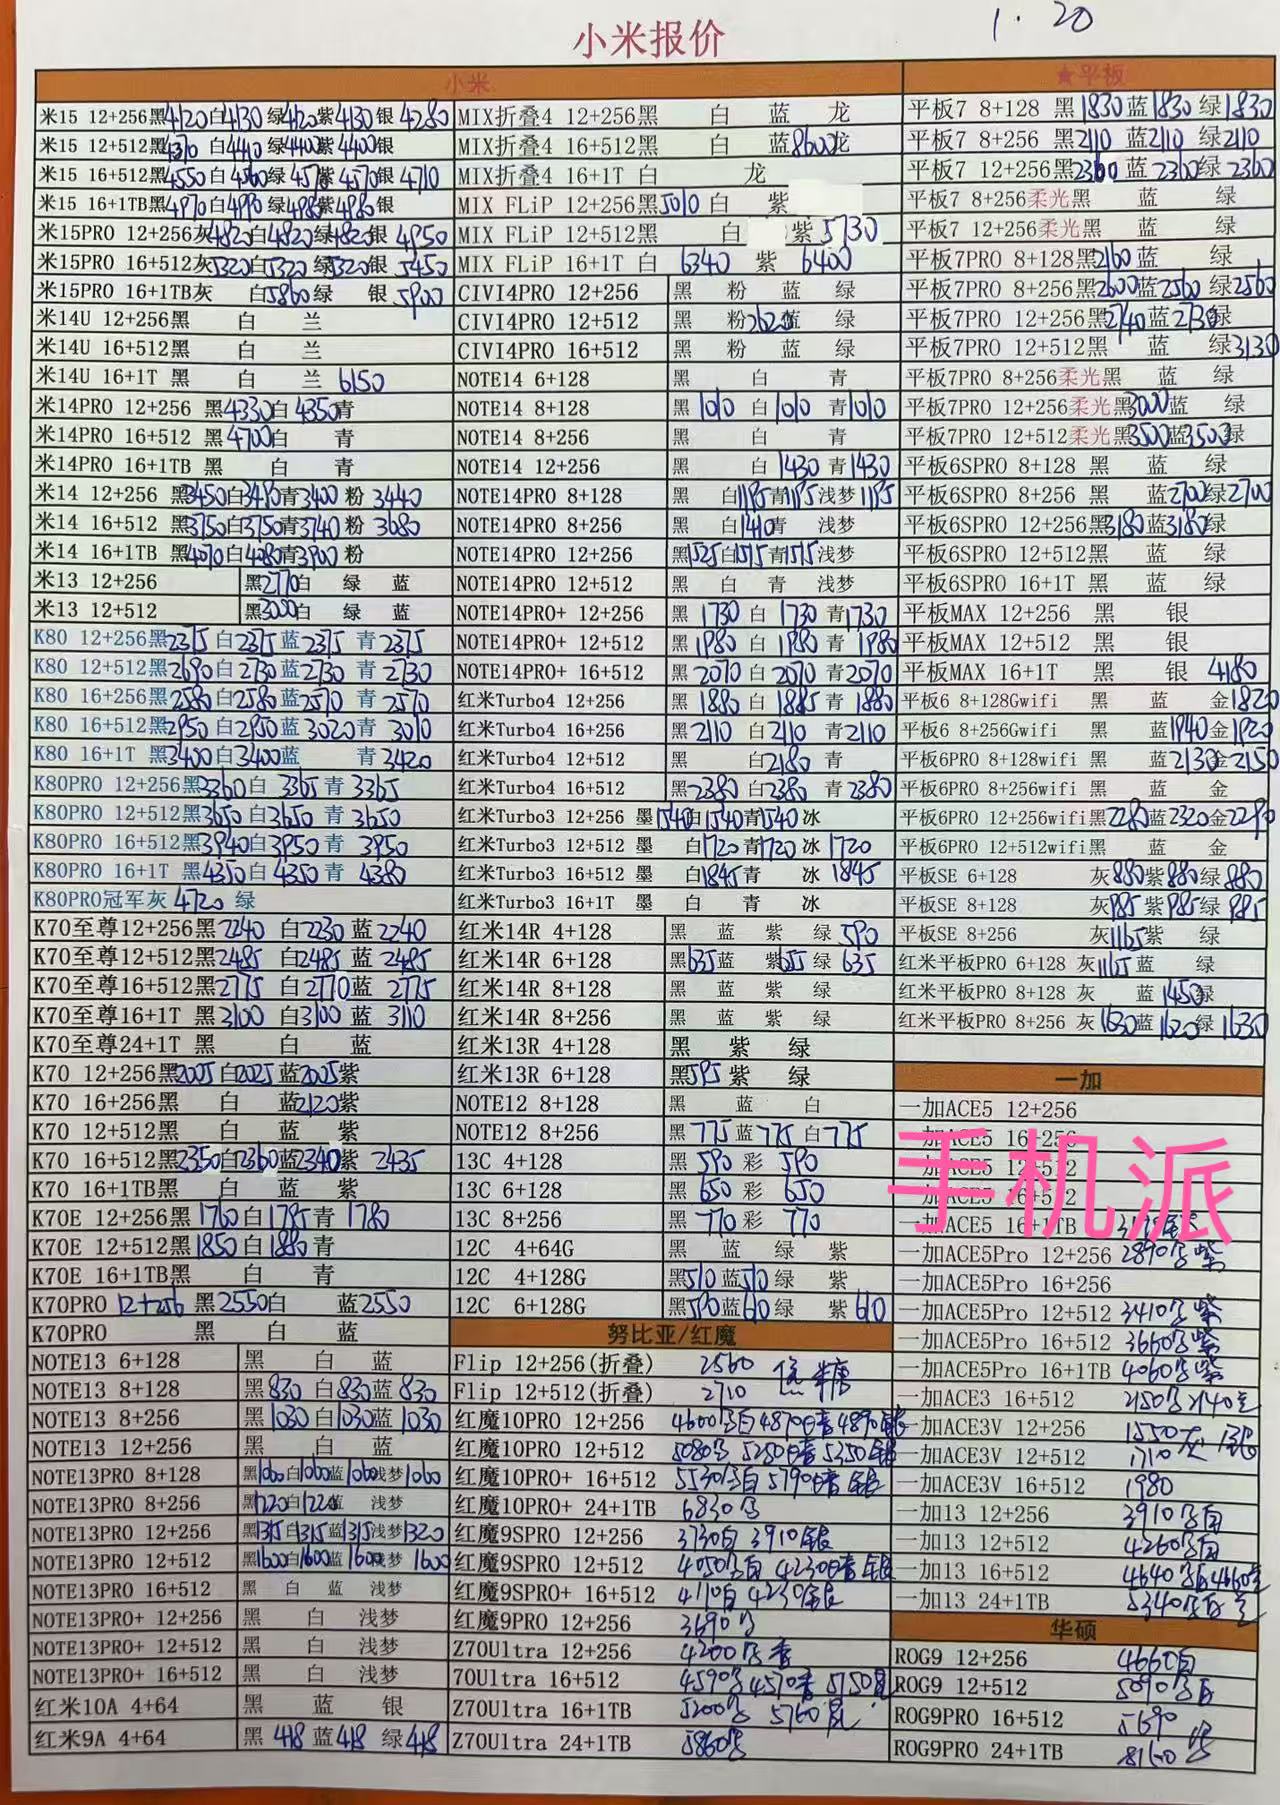 1.20
小米报价
小米
米15 12+256黑4120白4130 绿4120紫4130银 4280
米15 12+512黑4370 白4410绿4400紫4400银
米15 16+512黑4550白4560绿4570紫4570银4710
米15 16+1TB黑4970白4990绿4980紫4980银
米15PRO 12+256灰4820白4820绿4820银 4950
米15PRO 16+512灰5320白5320 绿5320银 5450
米15PRO 16+1TB灰 白5860绿 银 5900
米14U 12+256黑 白 兰
米14U 16+512黑 白 兰
米14U 16+1T 黑 白 兰 6150
米14PRO 12+256 黑4330白4350青
米14PRO 16+512 黑4700白 青
米14PRO 16+1TB 黑 白 青
米14 12+256 黑3450白3410青3400 粉 3440
米14 16+512 黑3750白3750青3740 粉 3680
米14 16+1TB 黑4010白4080青3900粉
米13 12+256 黑2770白 绿 蓝
米13 12+512 黑3000白 绿 蓝
K80 12+256黑2375 白2375蓝2375 青 2375
K80 12+512黑2690白2730蓝2730 青 2730
K80 16+256黑2580白2580蓝2570 青 2570
K80 16+512黑2950 白2950蓝3020青 3010
K80 16+1T 黑3400白3400蓝 青3420
K80PRO 12+256黑3360白 3365青 3365
K80PRO 12+512黑3650白3650青 3650
K80PRO 16+512黑3940白3950青 3950
K80PRO 16+1T 黑4350白4350青 4380
K80PRO冠军灰 4720 绿
K70至尊12+256黑2240 白2230 蓝2240
K70至尊12+512黑2485 白2485 蓝 2485
K70至尊16+512黑2775 白2770蓝 2775
K70至尊16+1T 黑3100 白3100 蓝 3110
K70至尊24+1T 黑 白 蓝
K70 12+256黑2005白2025蓝2005紫
K70 16+256黑 白 蓝2120紫
K70 12+512黑 白 蓝 紫
K70 16+512黑2350白2360蓝2340紫 2435
K70 16+1TB黑 白 蓝 紫
K70E 12+256黑1760白1785青 1780
K70E 12+512黑1850白1880青
K70E 16+1TB黑 白 青
K70PRO 12+256 黑2550白 蓝2550
K70PRO 黑 白 蓝
NOTE13 6+128 黑 白 蓝
NOTE13 8+128 黑830 白830蓝 830
NOTE13 8+256 黑1030白1030蓝1030
NOTE13 12+256 黑 白 蓝
NOTE13PRO 8+128 黑1060白1060蓝1060浅梦1060
NOTE13PRO 8+256 黑1220白1220蓝 浅梦
NOTE13PRO 12+256 黑1315白1315蓝1315浅梦1320
NOTE13PRO 12+512 黑1600白1600蓝1600浅梦 1600
NOTE13PRO 16+512 黑 白 蓝 浅梦
NOTE13PRO+ 12+256 黑 白 浅梦
NOTE13PRO+ 12+512 黑 白 浅梦
NOTE13PRO+ 16+512 黑 白 浅梦
红米10A 4+64 黑 蓝 银
红米9A 4+64 黑 418 蓝418 绿418
MIX折叠4 12+256黑 白 蓝 龙
MIX折叠4 16+512黑 白 蓝8600龙
MIX折叠4 16+1T 白 龙
MIX FLiP 12+256黑5010白 紫
MIX FLiP 12+512黑 白 紫5730
MIX FLiP 16+1T 白 6340 紫 6400
CIVI4PRO 12+256 黑 粉 蓝 绿
CIVI4PRO 12+512 黑 粉2620蓝 绿
CIVI4PRO 16+512 黑 粉 蓝 绿
NOTE14 6+128 黑 白 青
NOTE14 8+128 黑 1010 白1010 青1010
NOTE14 8+256 黑 白 青
NOTE14 12+256 黑 白1430 青1430
NOTE14PRO 8+128 黑 白1195青1195浅梦 1195
NOTE14PRO 8+256 黑 白1410青 浅梦
NOTE14PRO 12+256 黑1525白1515青1515浅梦
NOTE14PRO 12+512 黑 白 青 浅梦
NOTE14PRO+ 12+256 黑 1730 白 1730 青1730
NOTE14PRO+ 12+512 黑1980 白 1980 青 1980
NOTE14PRO+ 16+512 黑2070 白 2070 青2070
红米Turbo4 12+256 黑 1880 白 1885 青 1880
红米Turbo4 16+256 黑2110 白2110 青2110
红米Turbo4 12+512 黑 白2180 青
红米Turbo4 16+512 黑2380 白2380 青2380
红米Turbo3 12+256 墨1540白1540青1540冰
红米Turbo3 12+512 墨 白1720青1720冰 1720
红米Turbo3 16+512 墨 白1845青 冰 1845
红米Turbo3 16+1T 墨 白 青 冰
红米14R 4+128 黑 蓝 紫 绿 590
红米14R 6+128 黑635蓝 紫655绿 635
红米14R 8+128 黑 蓝 紫 绿
红米14R 8+256 黑 蓝 紫 绿
红米13R 4+128 黑 紫 绿
红米13R 6+128 黑595 紫 绿
NOTE12 8+128 黑 蓝 白
NOTE12 8+256 黑 775 蓝 775 白775
13C 4+128 黑 590 彩 590
13C 6+128 黑 650 彩 650
13C 8+256 黑 770 彩 770
12C 4+64G 黑 蓝 绿 紫
12C 4+128G 黑510 蓝510 绿 紫
12C 6+128G 黑590蓝610绿 紫 610
努比亚/红魔
Flip 12+256(折叠) 2560 焦糖
Flip 12+512(折叠) 2710
红魔10PRO 12+256
红魔10PRO 12+512
红魔10PRO+ 16+512
红魔10PRO+ 24+1TB 6830
红魔9SPRO 12+256 3730白 3910银
红魔9SPRO 12+512
红魔9SPRO+ 16+512 4110白 4230银
红魔9PRO 12+256 3690
Z70Ultra 12+256 4200
70Ultra 16+512
Z70Ultra 16+1TB 5200
Z70Ultra 24+1TB 5860
★平板
平板7 8+128 黑 1830蓝1830 绿1830
平板7 8+256 黑2110 蓝2110 绿2110
平板7 12+256黑2360 蓝2360绿 2360
平板7 8+256柔光黑 蓝 绿
平板7 12+256柔光黑 蓝 绿
平板7PRO 8+128黑2160蓝 绿
平板7PRO 8+256黑2600蓝2560 绿2560
平板7PRO 12+256黑2740蓝2730绿
平板7PRO 12+512黑 蓝 绿3130
平板7PRO 8+256柔光黑 蓝 绿
平板7PRO 12+256柔光黑3000蓝 绿
平板7PRO 12+512柔光黑3500蓝3500绿
平板6SPRO 8+128 黑 蓝 绿
平板6SPRO 8+256 黑 蓝2700绿2700
平板6SPRO 12+256黑3180蓝3180绿
平板6SPRO 12+512黑 蓝 绿
平板6SPRO 16+1T 黑 蓝 绿
平板MAX 12+256 黑 银
平板MAX 12+512 黑 银
平板MAX 16+1T 黑 银 4180
平板6 8+128Gwifi 黑 蓝 金1820
平板6 8+256Gwifi 黑 蓝1940金1920
平板6PRO 8+128wifi 黑 蓝2130金2150
平板6PRO 8+256wifi 黑 蓝 金
平板6PRO 12+256wifi黑2280蓝2320金2290
平板6PRO 12+512wifi黑 蓝 金
平板SE 6+128 灰880紫880绿880
平板SE 8+128 灰985 紫985绿 985
平板SE 8+256 灰1165紫 绿
红米平板PRO 6+128 灰1165蓝 绿
红米平板PRO 8+128 灰 蓝1450绿
红米平板PRO 8+256 灰1630蓝1620绿 1630
一加
一加ACE5 12+256
一加ACE5 16+256
一加ACE5 12+512
一加ACE5 16+512
一加ACE5 16+1TB
手机派
一加ACE5Pro 12+256 2890
一加ACE5Pro 16+256
一加ACE5Pro 12+512 3410
一加ACE5Pro 16+512 3660
一加ACE5Pro 16+1TB 4060
一加ACE3 16+512
一加ACE3V 12+256 1550灰
一加ACE3V 12+512 1710
一加ACE3V 16+512 1980
一加13 12+256 3910
一加13 12+512 4260
一加13 16+512 4640
一加13 24+1TB 5340
华硕
ROG9 12+256 4660白
ROG9 12+512 5090
ROG9PRO 16+512 5690
ROG9PRO 24+1TB 8160